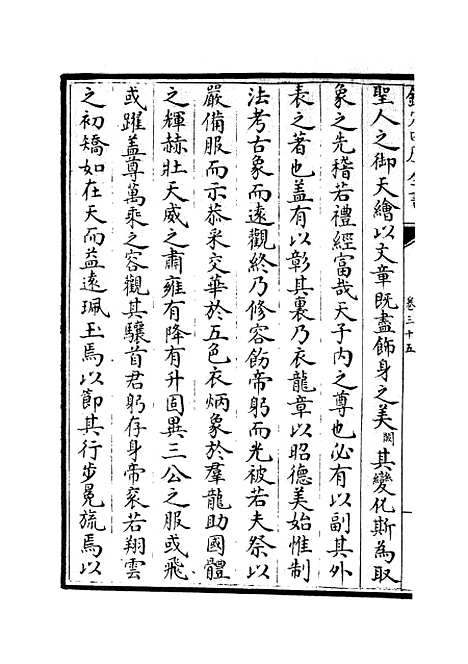 欽定四庫全書
卷三十五
聖人之御天繪以文章既盡飾身之美闕其變化斯為取
象之先稽若禮經富哉天子内之尊也必有以副其外
表之著也蓋有以彰其裏乃衣龍章以昭德美始惟制
法考古象而遠觀終乃修容飭帝躬而光被若夫祭以
嚴備服而示恭采交華於五色衣炳象於羣龍助國體
之輝赫壯天威之肅雍有降有升固異三公之服或飛
或躍蓋尊萬乘之容觀其驤首君躬存身帝衮若翔雲
之初矯如在天而益遠珮玉焉以節其行步冕旒焉以